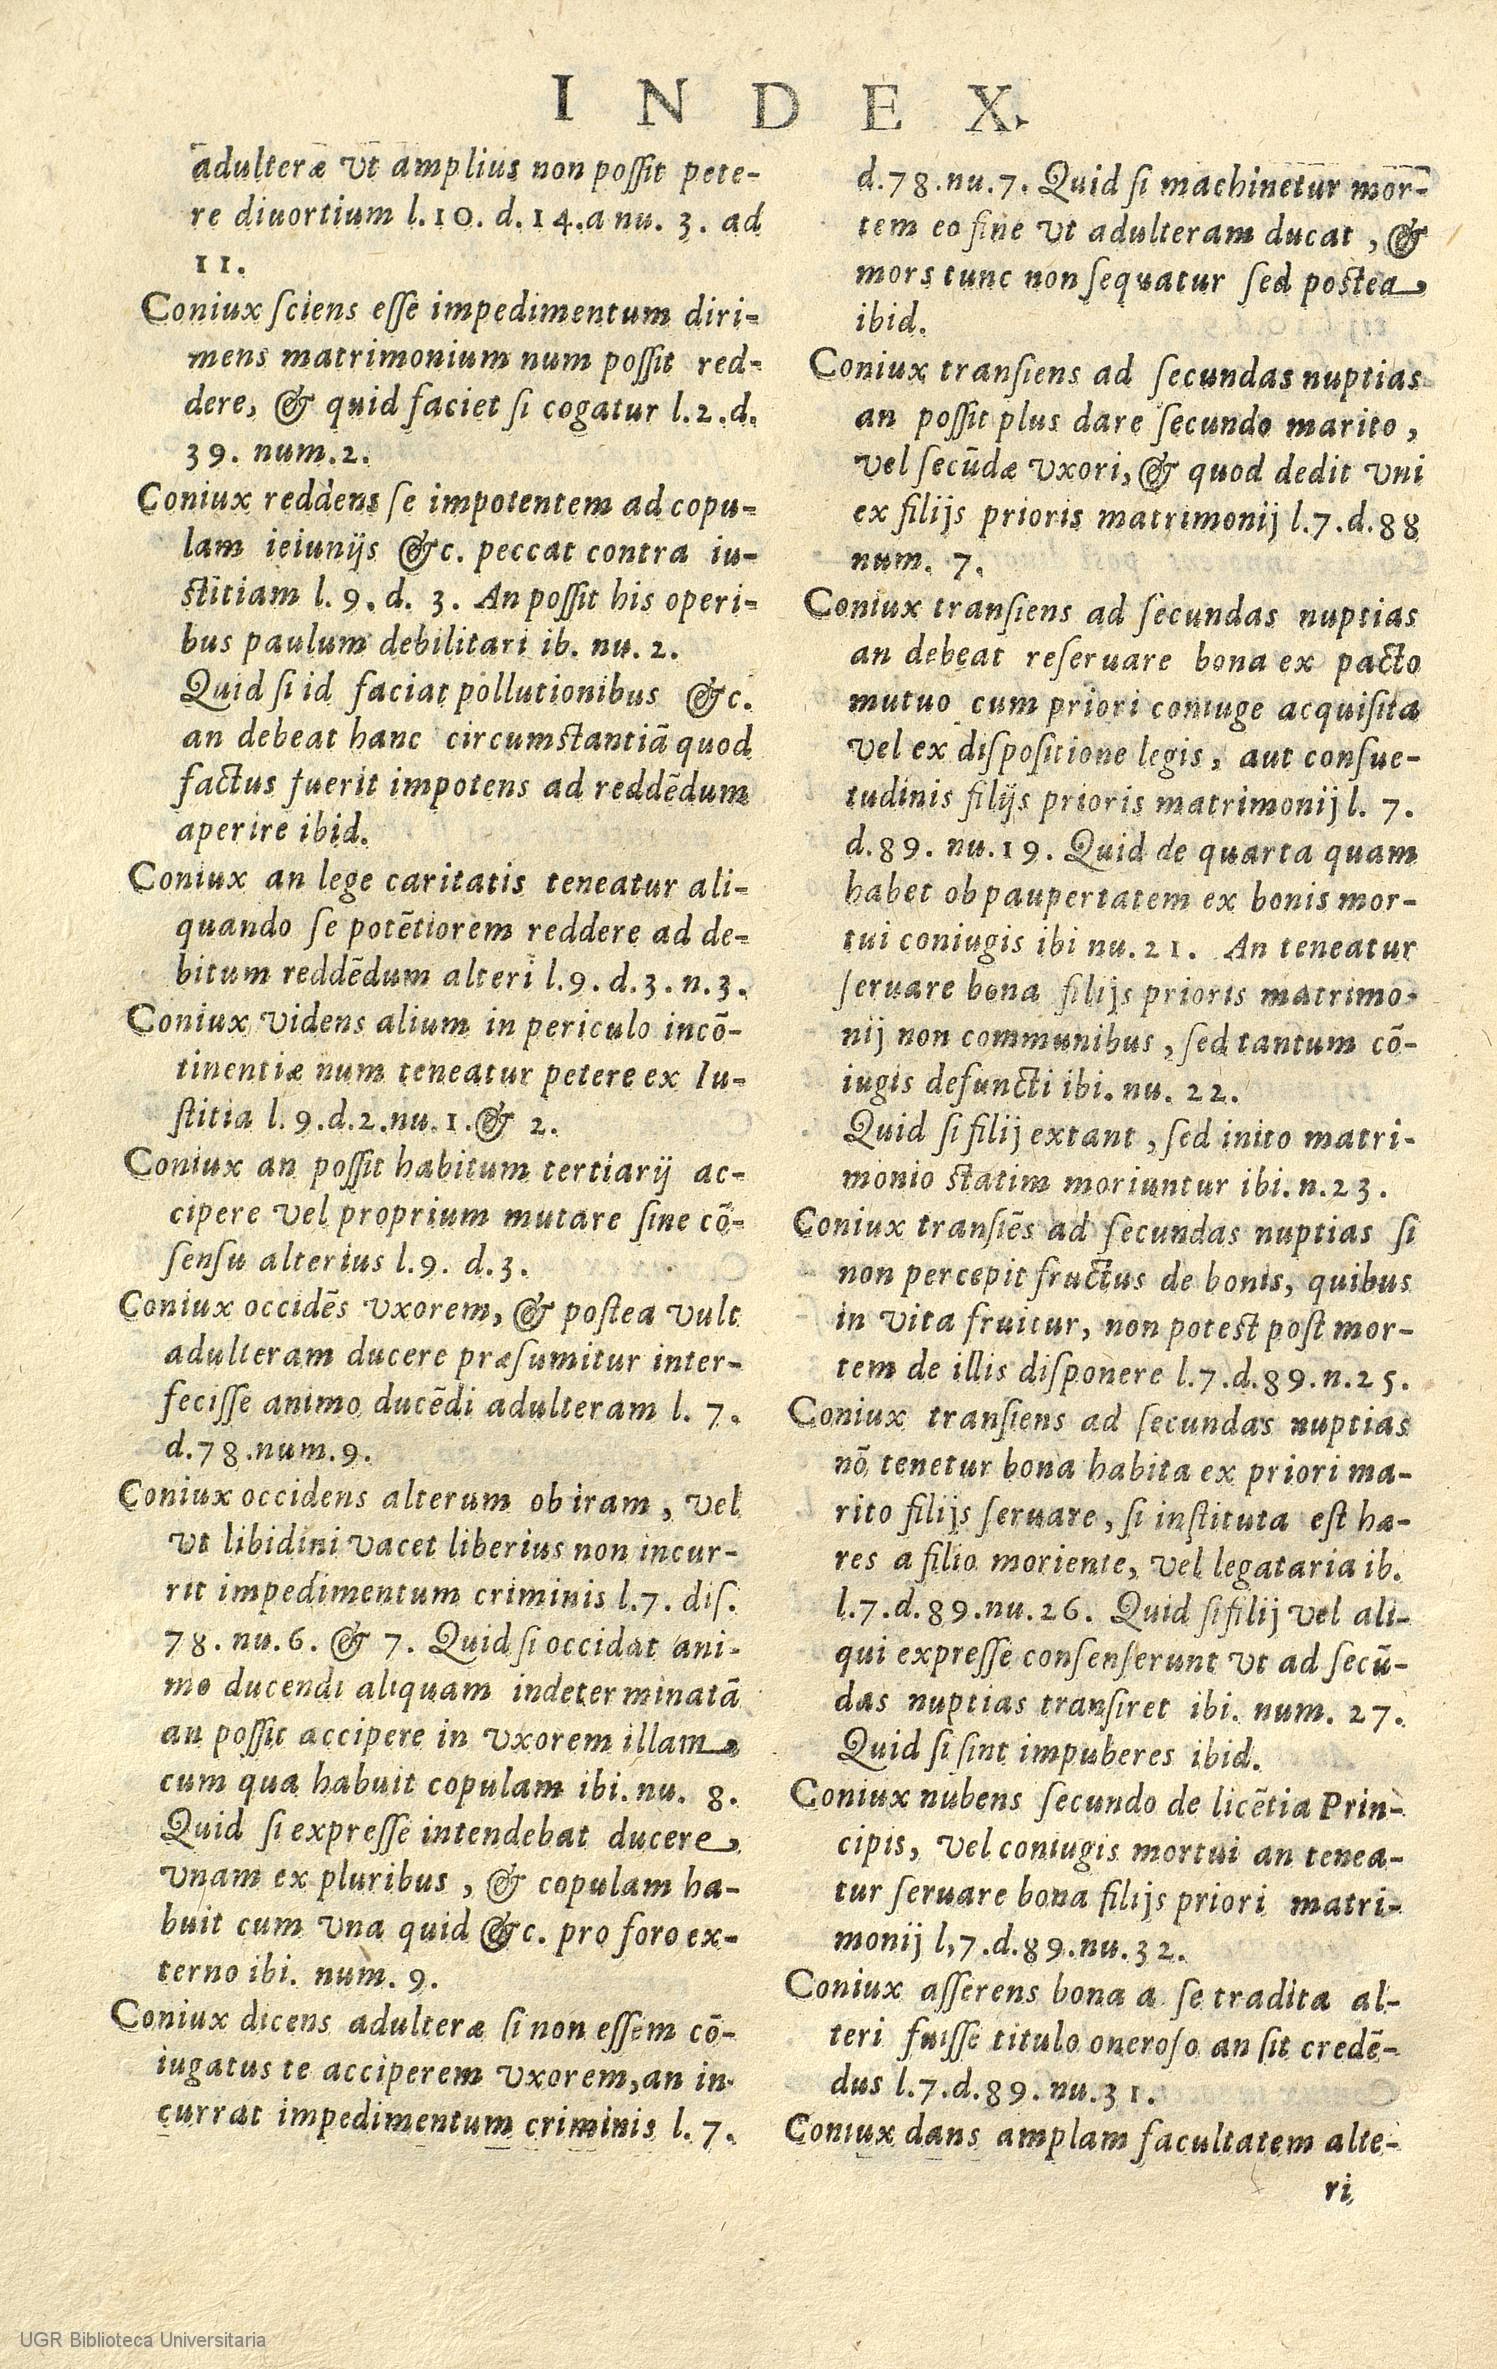 INDEX.
adulteræ vt amplius non poſſit pete-
re diuortium l.10. d.14.a nu. 3. ad
11.
Coniux ſciens eſſe impedimentum diri-
mens matrimonium num poſſit red-
dere, & quid faciet ſi cogatur l.2.d.
39. num.2.
Coniux reddens ſe impotentem ad copu-
lam ieiunijs &c. peccat contra iu-
ſtitiam l. 9. d. 3. An poſſit his operi-
bus paulum debilitari ib. nu. 2.
Quid ſi id faciat pollutionibus &c.
an debeat hanc circumſtantiã quod
factus fuerit impotens ad reddẽdum
aperire ibid.
Coniux an lege caritatis teneatur ali-
quando ſe potẽtiorem reddere ad de-
bitum reddẽdum alteri l.9.d.3.n.3.
Coniux videns alium in periculo incõ-
tinentiæ num teneatur petere ex Iu-
ſtitia l.9.d.2.nu.1.& 2.
Coniux an poſſit habitum tertiarij ac-
cipere vel proprium mutare ſine cõ-
ſenſu alterius l.9. d.3.
Coniux occidẽs vxorem, & poſtea vult
adulteram ducere præſumitur inter-
feciſſe animo ducẽdi adulteram l. 7.
d.78.num.9.
Coniux occidens alterum ob iram, vel
vt libidini vacet liberius non incur-
rit impedimentum criminis l.7. diſ.
78. nu.6. & 7. Quid ſi occidat ani-
mo ducendi aliquam indeterminatã
an poſſit accipere in vxorem illam
cum qua habuit copulam ibi. nu. 8.
Quid ſi expreſſe intendebat ducere
vnam ex pluribus, & copulam ha-
buit cum vna quid &c. pro foro ex-
terno ibi. num. 9.
Coniux dicens adulteræ ſi non eſſem cõ-
iugatus te acciperem vxorem,an in-
currat impedimentum criminis l. 7.
d.78.nu.7. Quid ſi machinetur mor-
tem eo fine vt adulteram ducat, &
mors tunc non ſequatur ſed poſtea
ibid.
Coniux tranſiens ad ſecundas nuptias
an poſſit plus dare ſecundo marito,
vel ſecũdæ vxori, & quod dedit vni
ex filijs prioris matrimonij l.7.d.88
num. 7.
Coniux tranſiens ad ſecundas nuptias
an debeat reſeruare bona ex pacto
mutuo cum priori coniuge acquiſita
vel ex diſpoſitione legis, aut conſue-
tudinis filijs prioris matrimonij l. 7.
d.89. nu.19. Quid de quarta quam
habet ob paupertatem ex bonis mor-
tui coniugis ibi nu.21. An teneatur
ſeruare bona filijs prioris matrimo-
nij non communibus, ſed tantum cõ-
iugis defuncti ibi. nu. 22.
Quid ſi filij extant, ſed inito matri-
monio ſtatim moriuntur ibi.n.23.
Coniux tranſiẽs ad ſecundas nuptias ſi
non percepit fructus de bonis, quibus
in vita fruitur, non poteſt poſt mor-
tem de illis diſponere l.7.d.89.n.25.
Coniux tranſiens ad ſecundas nuptias
nõ tenetur bona habita ex priori ma-
rito filijs ſeruare, ſi inſtituta eſt hæ-
res a filio moriente, vel legataria ib.
l.7.d.89.nu.26. Quid ſi filij vel ali-
qui expreſſe conſenſerunt vt ad ſecũ-
das nuptias tranſiret ibi. num. 27.
Quid ſi ſint impuberes ibid.
Coniux nubens ſecundo de licẽtia Prin-
cipis, vel coniugis mortui an tenea-
tur ſeruare bona filijs priori matri-
monij l,7.d.89.nu.32.
Coniux aſſerens bona a ſe tradita al-
teri fuiſſe titulo oneroſo an ſit credẽ-
dus l.7.d.89.nu.31.
Coniux dans amplam facultatem alte-
ri
UGR Biblioteca Universitaria